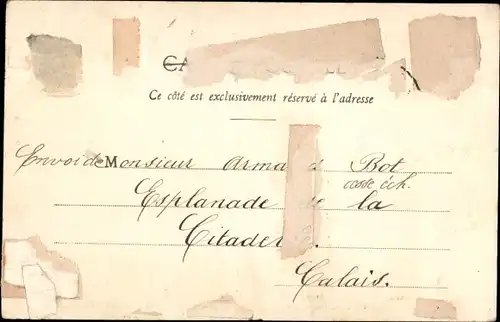 CA
Ce côté est exclusivement réservé à l'adresse
Envoi de Monsieur Armand Bot
Esplanade de la
Citadelle
Calais.